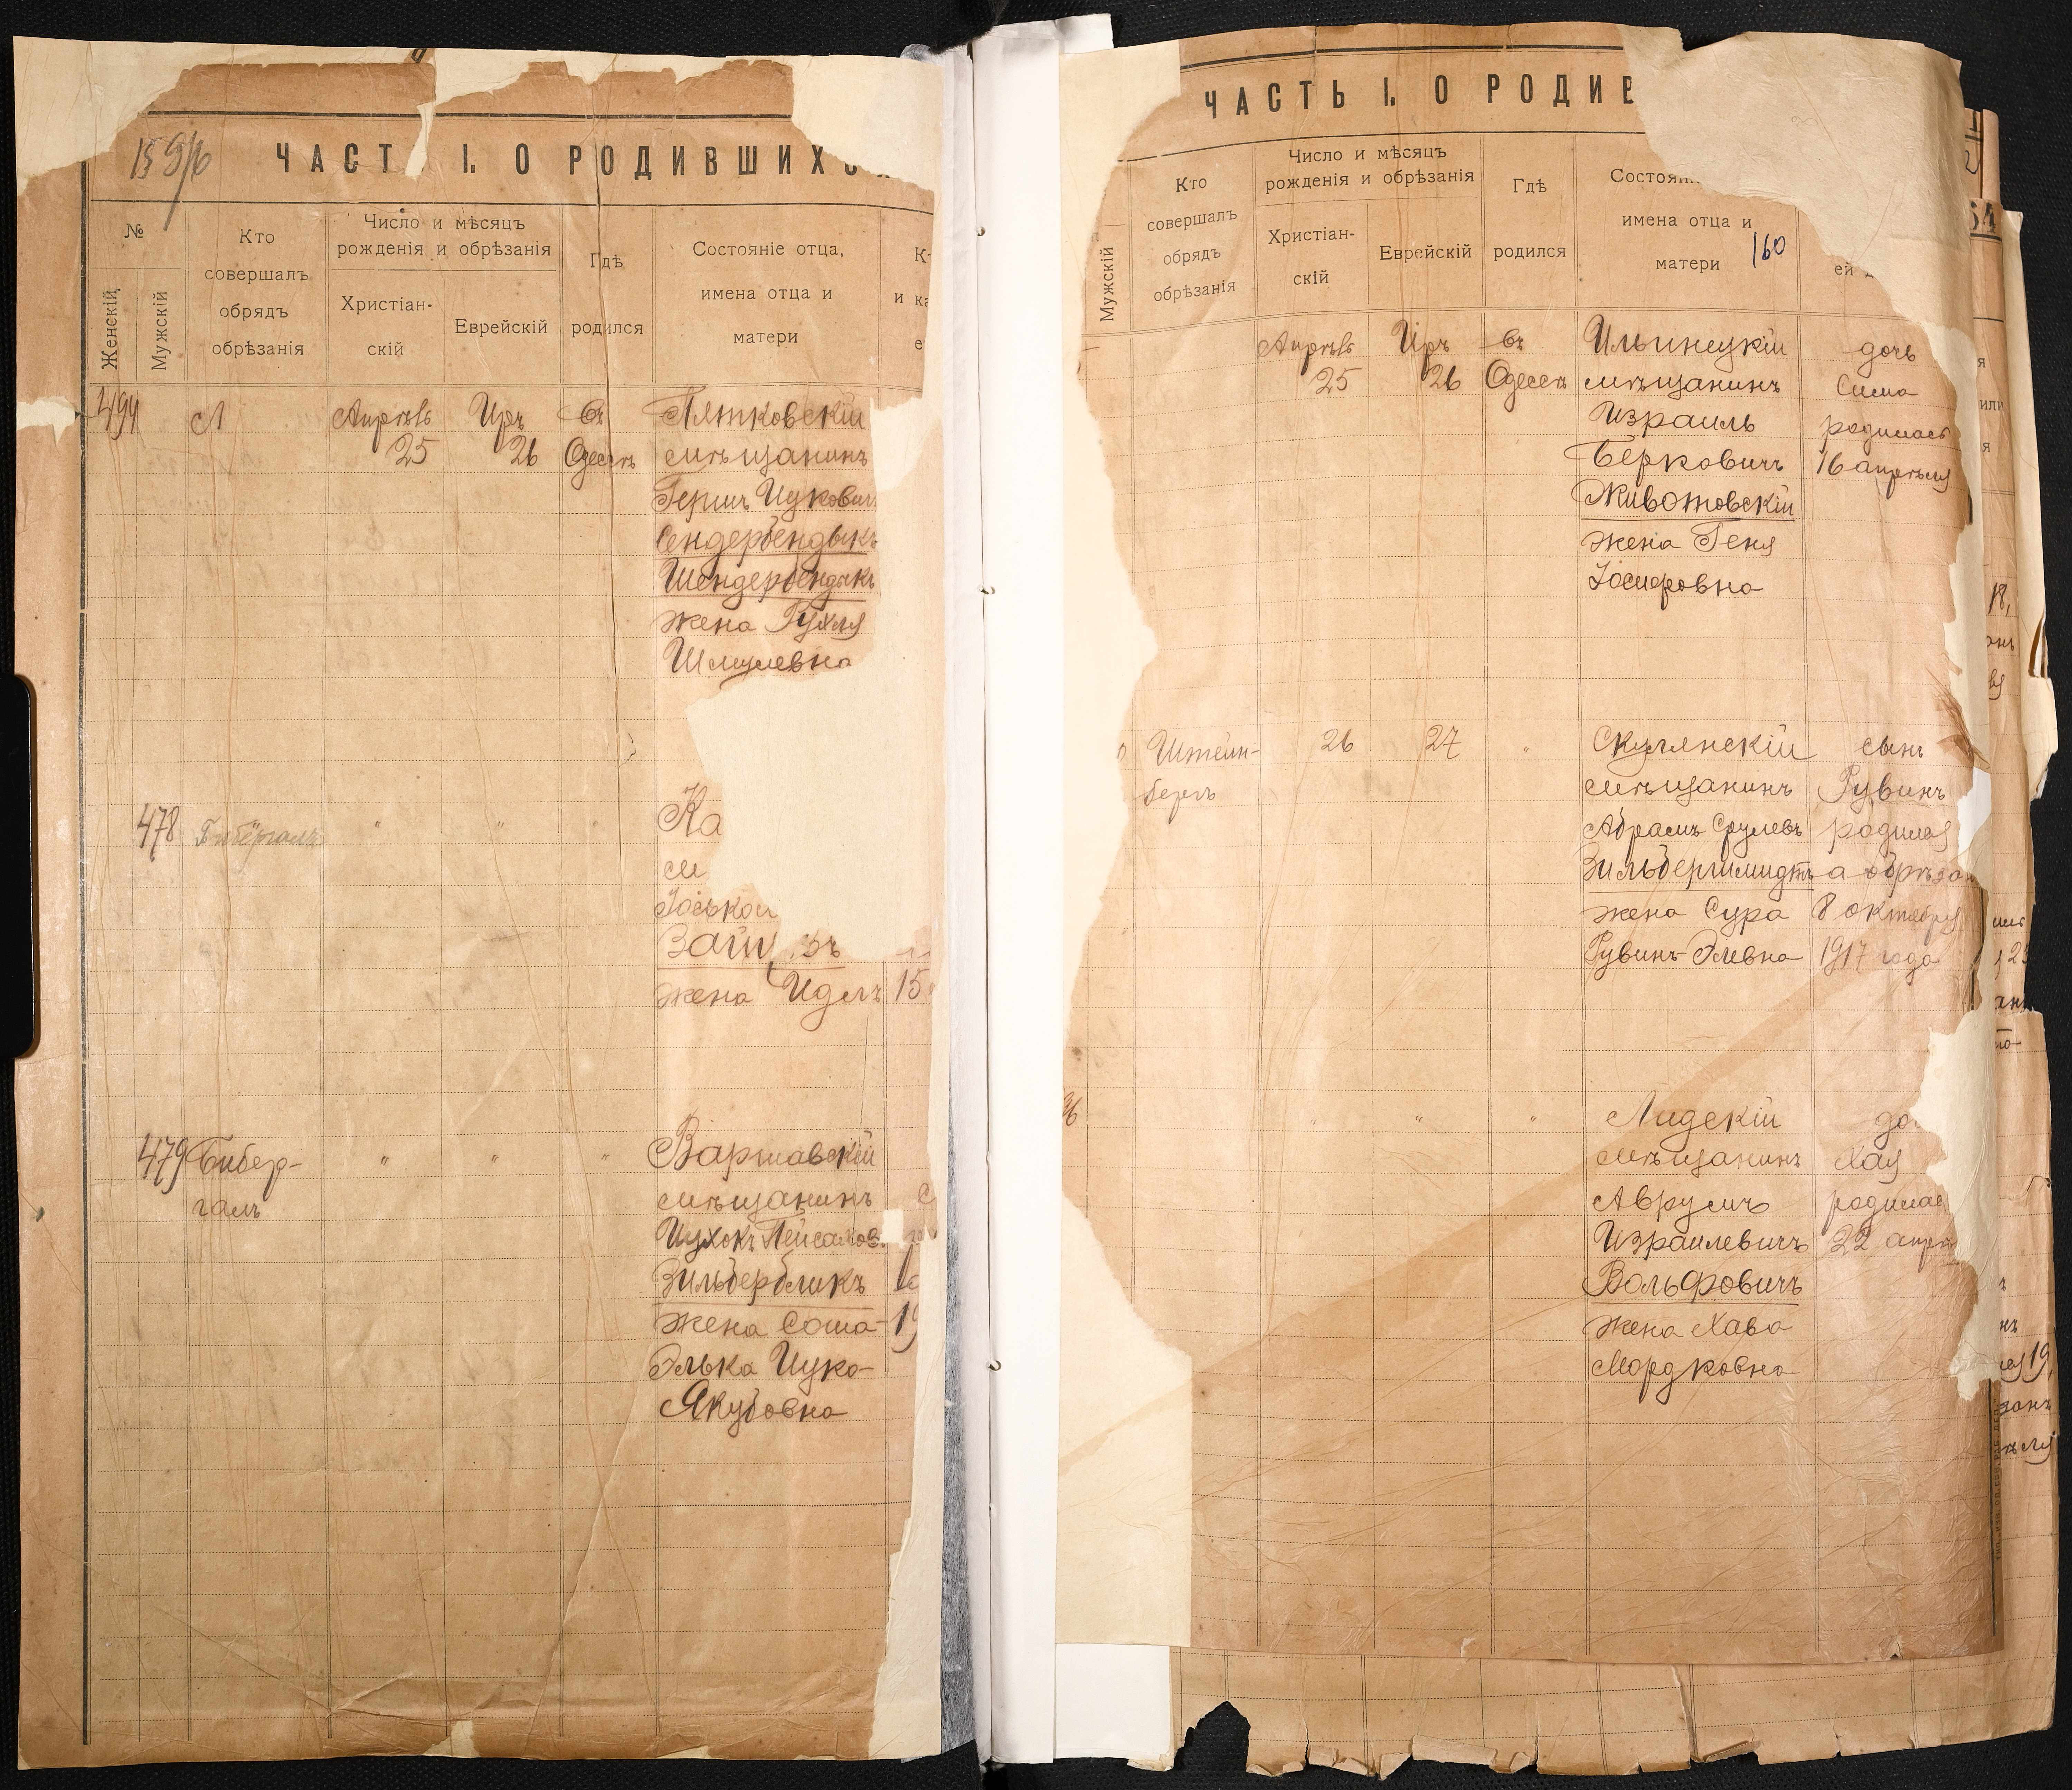 159/б
ЧАСТ I. О РОДИВШИХС
№
Женскій
Мужскій
Кто
совершалъ
обрядъ
обрѣзанія
Число и мѣсяцъ
рожденія и обрѣзанія
Христіан-
скій
Еврейскій
Гдѣ
родился
Состояніе отца,
имена отца и
матери
494
Апрѣль
25
Иръ
26
въ
Одессѣ
Пятковскій
мѣщанинъ
Гершъ Ицкович
Сендербендыкъ
Шендербендыкъ
жена Рухля
Шмулевна
478
Бибергалъ
" " "
Ка
м
Іоськов
Зай ъ
жена Идесъ
15
479
Бибер-
галъ
" " "
Варшавскій
мѣщанинъ
Ицхокъ Пейсахов.
Зильбербликъ
жена Соша-
Элька Ицко-
Якубовна
19
ЧАСТЬ I. О РОДИВ
Мужскій
Кто
совершалъ
обрядъ
обрѣзанія
Число и мѣсяцъ
рожденія и обрѣзанія
Христіан-
скій
Еврейскій
Гдѣ
родился
Состоян
имена отца и
матери
160
ей
Апрѣль
25
Иръ
26
въ
Одессѣ
Ильинецкій
мѣщанинъ
Израиль
Берковичъ
Животовскій
жена Геня
Іосифовна
дочь
Сима
родилась
16 апрѣля
Штейн-
бергъ
26
27
"
Скулянскій
мѣщанинъ
Абрамъ Срулевъ
Зильбершмидтъ
жена Сура
Рувинъ-Элевна
сынъ
Рувинъ
родился
а обрѣзан
8 октября
1917 года
36
" " "
Лидскій
мѣщанинъ
Аврумъ
Израилевичъ
Вольфовичъ
жена Хава
Мордковна
до
Хая
родилас
22 апрѣ